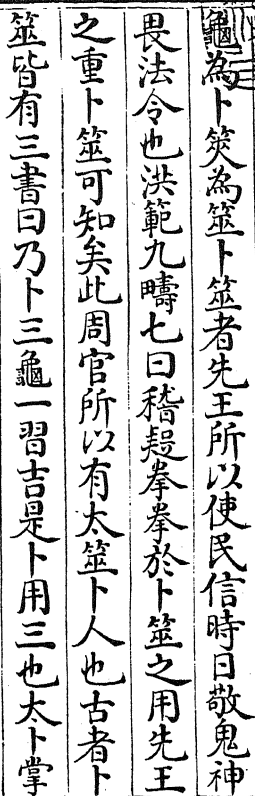 龜為卜筴為筮卜筮者先王所以使民信時日敬鬼神
畏法令也洪範九疇七曰稽疑拳拳於卜筮之用先王
之重卜筮可知矣此周官所以有太筮卜人也古者卜
筮皆有三書曰乃卜三龜一習吉是卜用三也太卜掌